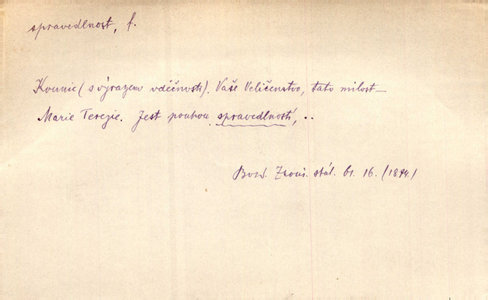 spravedlnost, f.
Kounic (s výrazem vděčnosti). Vaše Veličenstvo, tato milost—
Marie Terezie. Jest pouhou spravedlností, ..
stál. 61. 16. (1894.)